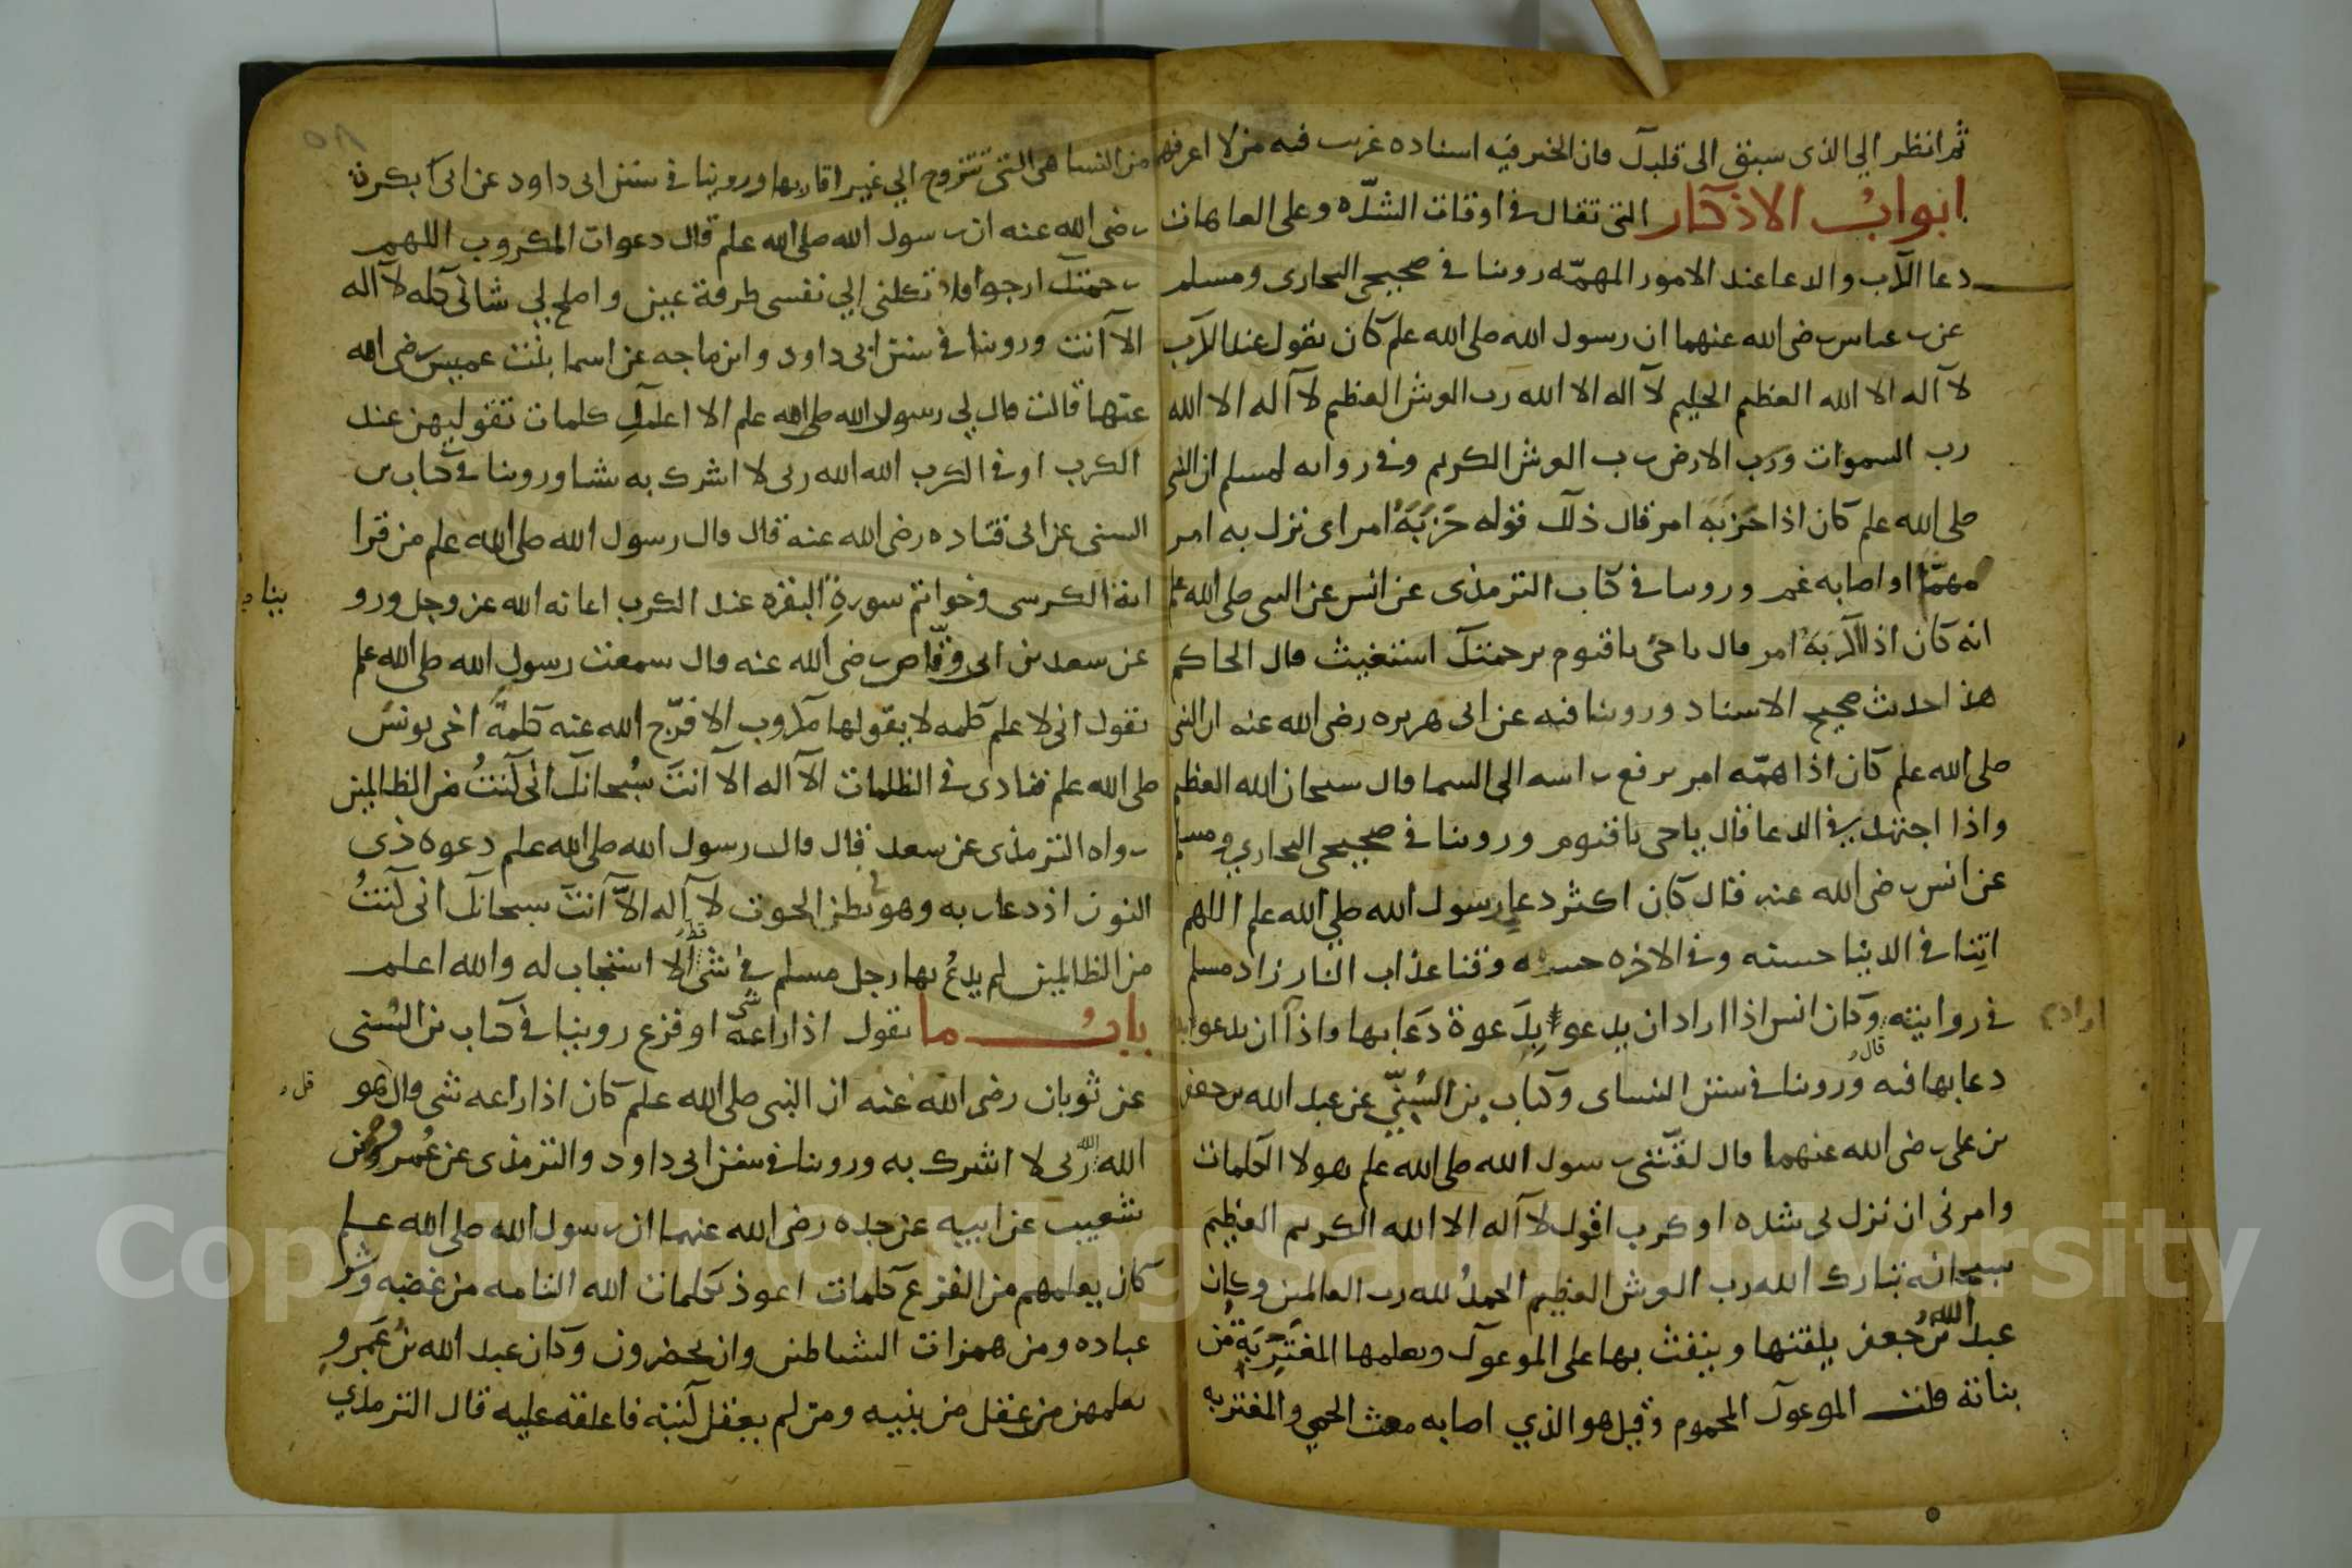 ثم انظر الي الذى سبق الى قلبك فان الخير فيه اسناده غريب فيه من لا اعرفهم
ابواب الاذكار التى تقال في اوقات الشدّه وعلى العاهات
دعا الكرب والدعا عند الامور المهمّه روينا في صحيحي البخارى ومسلم
عن بن عباس رضى الله عنهما ان رسول الله صلى الله علم كان يقول عند الكرب
لا اله الا الله العظيم الحليم لا اله الا الله رب العرش العظيم لا اله الا الله
رب السموات ورب الارض رب العرش الكريم وفي روايه لمسلم ان النبى
صلى الله علم كان اذا حَزَبَه امر قال ذلك قوله حَزَبَهُ امر اى نزل به امر
مهمّ او اصابه غم وروينا في كتاب الترمذى عن انس عن النبى صلى الله علم
انه كان اذا اكربَهُ امر قال يا حىّ يا قيوم برحمتك استغيث قال الحاكم
هذا حديث صحيح الاسناد وروينا فيه عن ابى هريره رضى الله عنه ان النبى
صلى الله علم كان اذا همّه امر رفع راسه الى السما قال سبحان الله العظيم
واذا اجتهد في الدعا قال يا حى يا قيوم وروينا في صحيحي البخاري ومسلم
عن انس رضى الله عنه قال كان اكثر دعا رسول الله صلي الله علم اللهم
اتِنا في الدنيا حسنه وفي الاخره حسنه وقنا عذاب النار زاد مسلم
في روايته قال وكان انس اذا اراد ان يدعو بِدَعوة دَعا بها واذا ان يدعو بدعا
اراد
دعا بها فيه وروينا في سنن النساى وكتاب بن السُنّي عن عبد الله بن جعفر
بن على رضى الله عنهما قال لقّننى رسول الله صلى الله علم هولا الكلمات
وامرنى ان نزل بى شده او كرب اقول لا اله الا الله الكريم العظيم
سبحانه تبارك الله رب العرش العظيم الحمدُ لله رب العالمين وكان
عبد الله بن جعفر يلقنها وينفث بها على الموعوك ويعلمها المغتَرِبَة من
بناته قلت الموعوك المحموم وقيل هو الذي اصابه مغث الحمي والمغتربه
من النسا هى التى تتزوج الي غير اقاربها وروينا في سنن ابى داود عن ابى بكرة
رضى الله عنه ان رسول الله صلى الله علم قال دعوات المكروب اللهم
رحمتك ارجو افلا تكلنى الي نفسى طرفة عين واصلح لي شانى كله لا اله
الا انت وروينا في سنن ابى داود وابن ماجه عن اسما بنت عميس رضى الله
عنها قالت قال لي رسول الله صلى الله علم الا اعلمكِ كلمات تقوليهن عند
الكرب او في الكرب الله الله ربى لا اشرك به شيا وروينا في كتاب بن
السنى عن ابى قتاده رضى الله عنه قال قال رسول الله صلى الله علم من قرا
اية الكرسى وخواتم سورةِ البقره عند الكرب اعانه الله عز وجل ورو
ينا
عن سعد بن ابى وقّاص رضى الله عنه قال سمعت رسول الله صلى الله علم
يقول انى لا علم كلمه لا يقولها مكروب الا فرّج الله عنه كلمةً اخى يونس
صلى الله علم فنادى في الظلمات الا اله الا انتَ سُبحانك انى كنتُ من الظالمين
رواه الترمذى عن سعد قال قال رسول الله صلى الله علم دعوه ذى
النون اذ دعا ربه وهو بطن الحوت لا اله الّا انتَ سبحانك انى كنتُ
من الظالمين لم يدعُ بها رجل مسلم في شى قط الا استجاب له والله اعلم
بابُ ما يقول اذا راعه شى او فزع روينا في كتاب بن السُنى
عن ثوبان رضى الله عنه ان النبى صلى الله علم كان اذا راعه شى قال هو
الله الله ربى لا اشرك به وروينا في سنن ابى داود والترمذى عن عُمرو بن
شعيب عن ابيه عن جده رضى الله عنهما ان رسول الله صلى الله علم
كان يعلمهم من الفزع كلمات اعوذ بكلمات الله التامه من غضبه وشر
عباده ومن همزات الشياطين وان يحضرون وكان عبد الله بن عَمرو
يعلمهن من عقل من بنيه ومن لم يعقل كتبه فاعلقه عليه قال الترمذي
Copyright © King Saud University